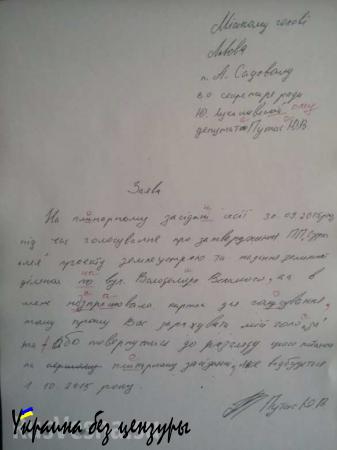 Міському голові
Львова
п. А. Садовому
секретаря ради
депутата Путас Ю.В
Заява
На планарному засідані сесії 30.09.2015року
під час голосування про затвердження ПП
проекту землеустрою та надання земельної
ділянки по вул. Володимира Великого, а в
мене незпрацювала картка для голосування,
тому прошу Вас зарахувати мій голос „за"
та або повернутися до розгляду цього питання
на планарному засідані, яке відбудеться
1.10.2015 року.
Путас Ю.В
Украина без цензуры